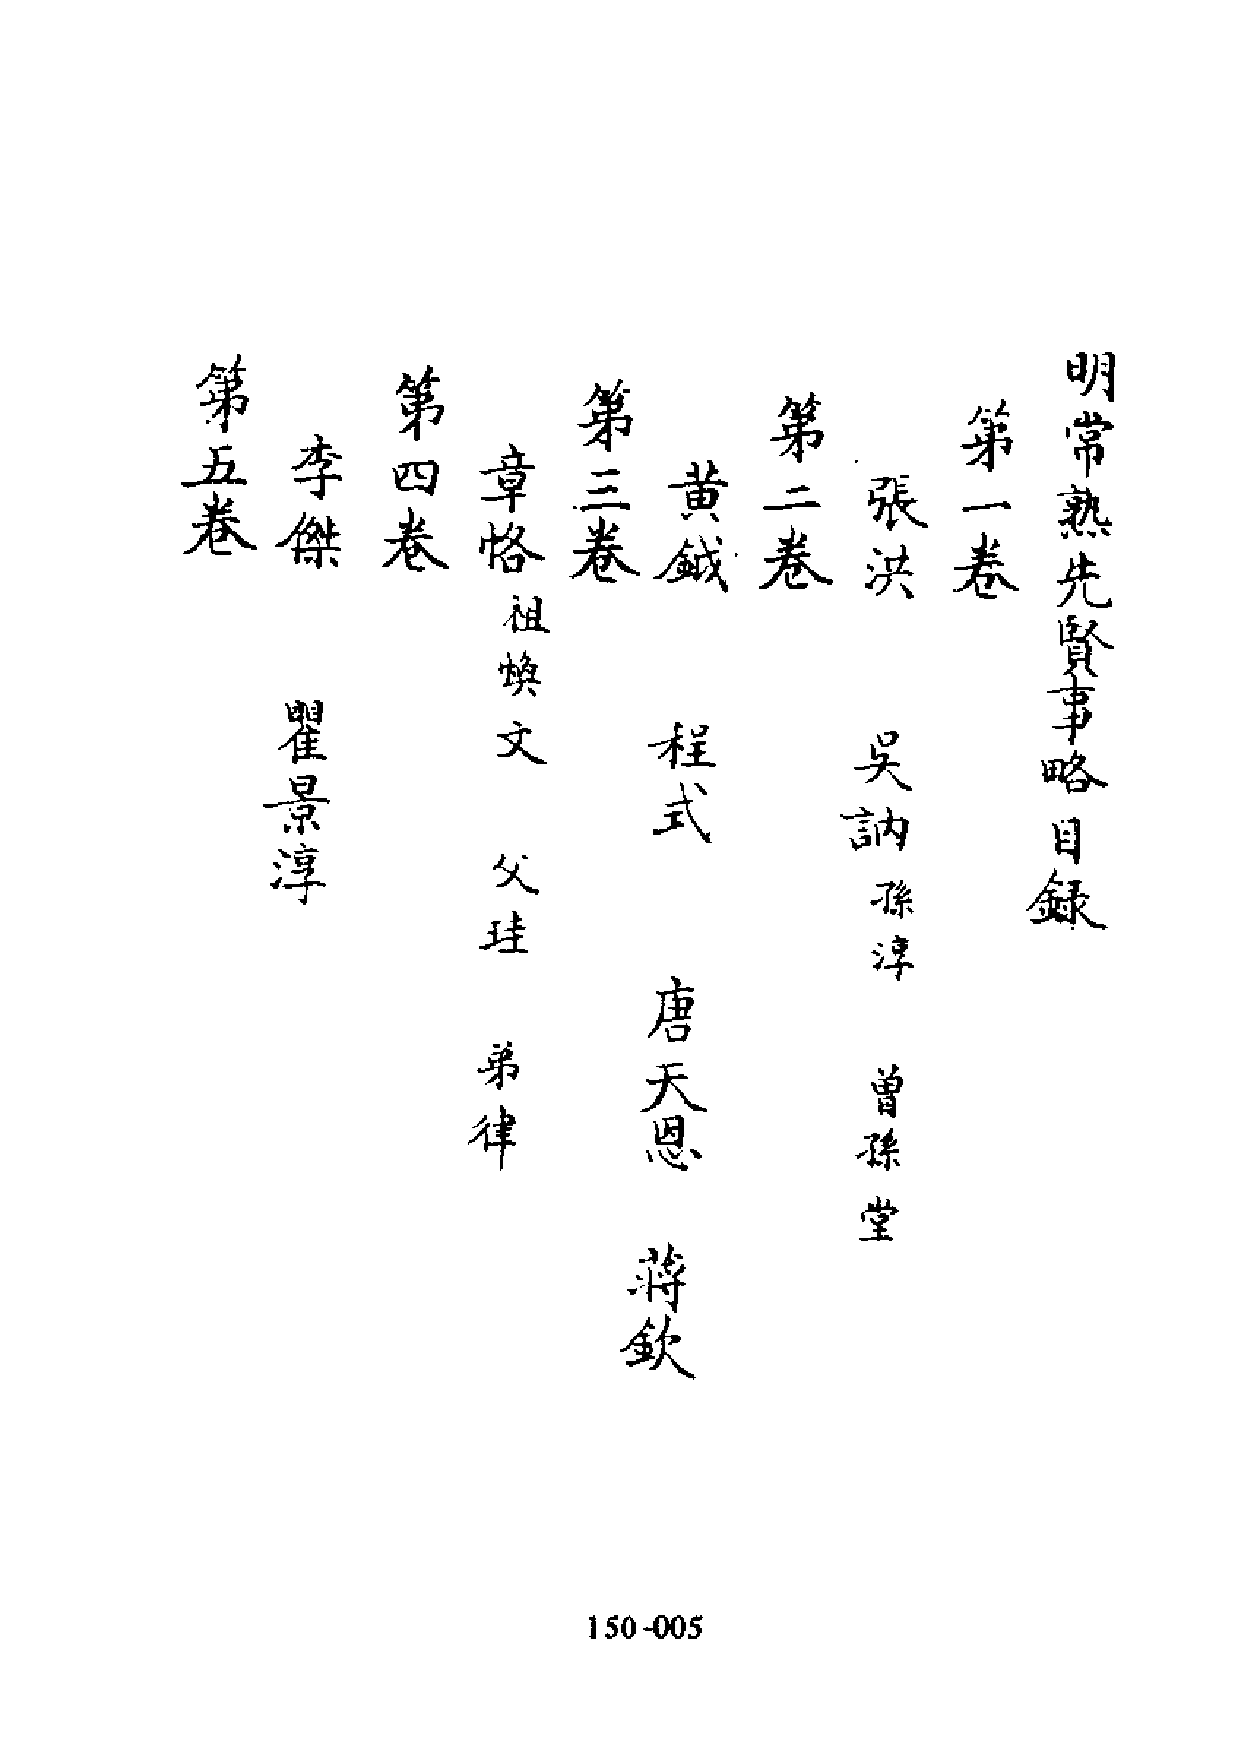 明常熟先賢事略目録
第一卷
張洪 吳訥 孫淳 曾孫堂
第二卷
黃鉞 程式 唐天恩 蔣欽
第三卷
章恪 祖煥文 父珪 弟律
第四卷
李傑 瞿景淳
第五卷
150-005